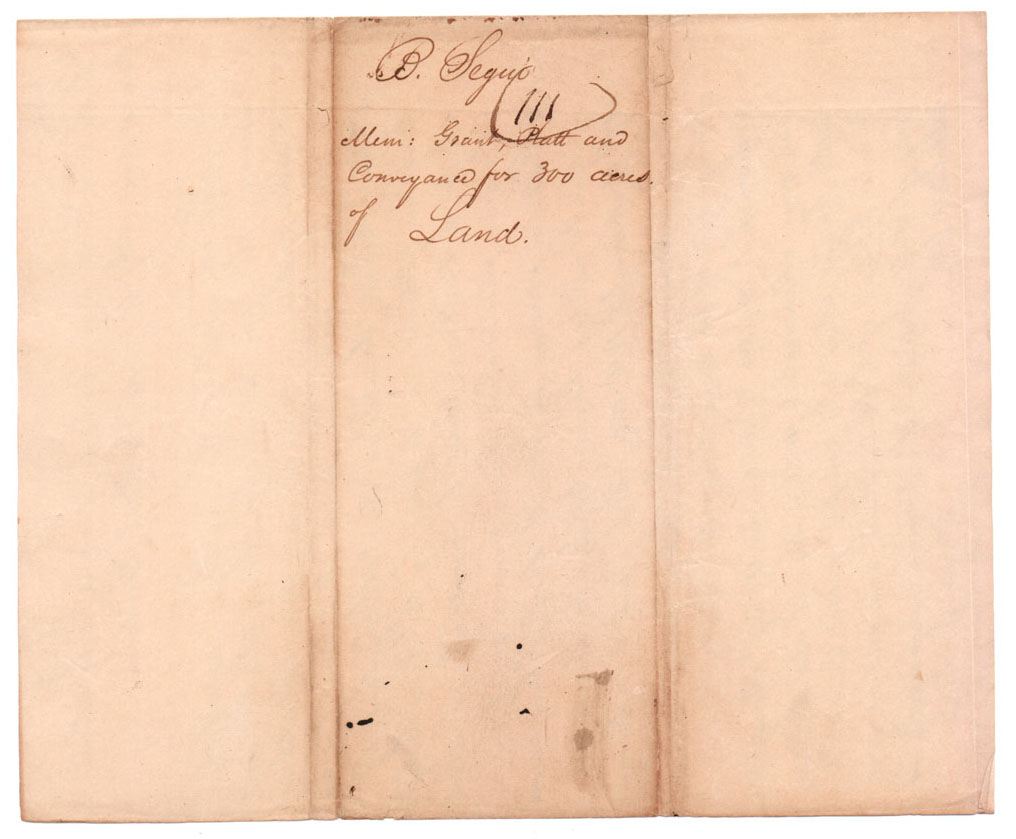 B. Segui
111
Mem: Grant, Platt and
Conveyance for 300 acres.
of Land.